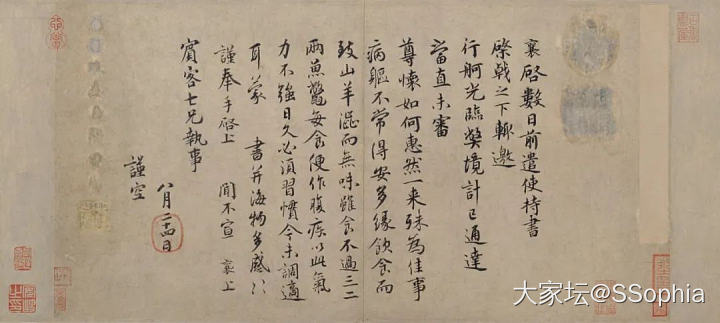 襄啓數日前遣使持書
棨戟之下輒邀
行舸光臨弊境計已通達
當直未審
尊懷如何惠然一来殊為佳事
病軀不常得安多緣飲食而
致山羊澀而無味雖食不過三二
兩魚鱉每食便作腹疾以此氣
力不強日久必須習慣今未調適
耳蒙 書并海物多感〻
謹奉手啓上 聞不宣 襄上
賓客七兄執事
八月二十四日
謹空
大家坛@SSophia